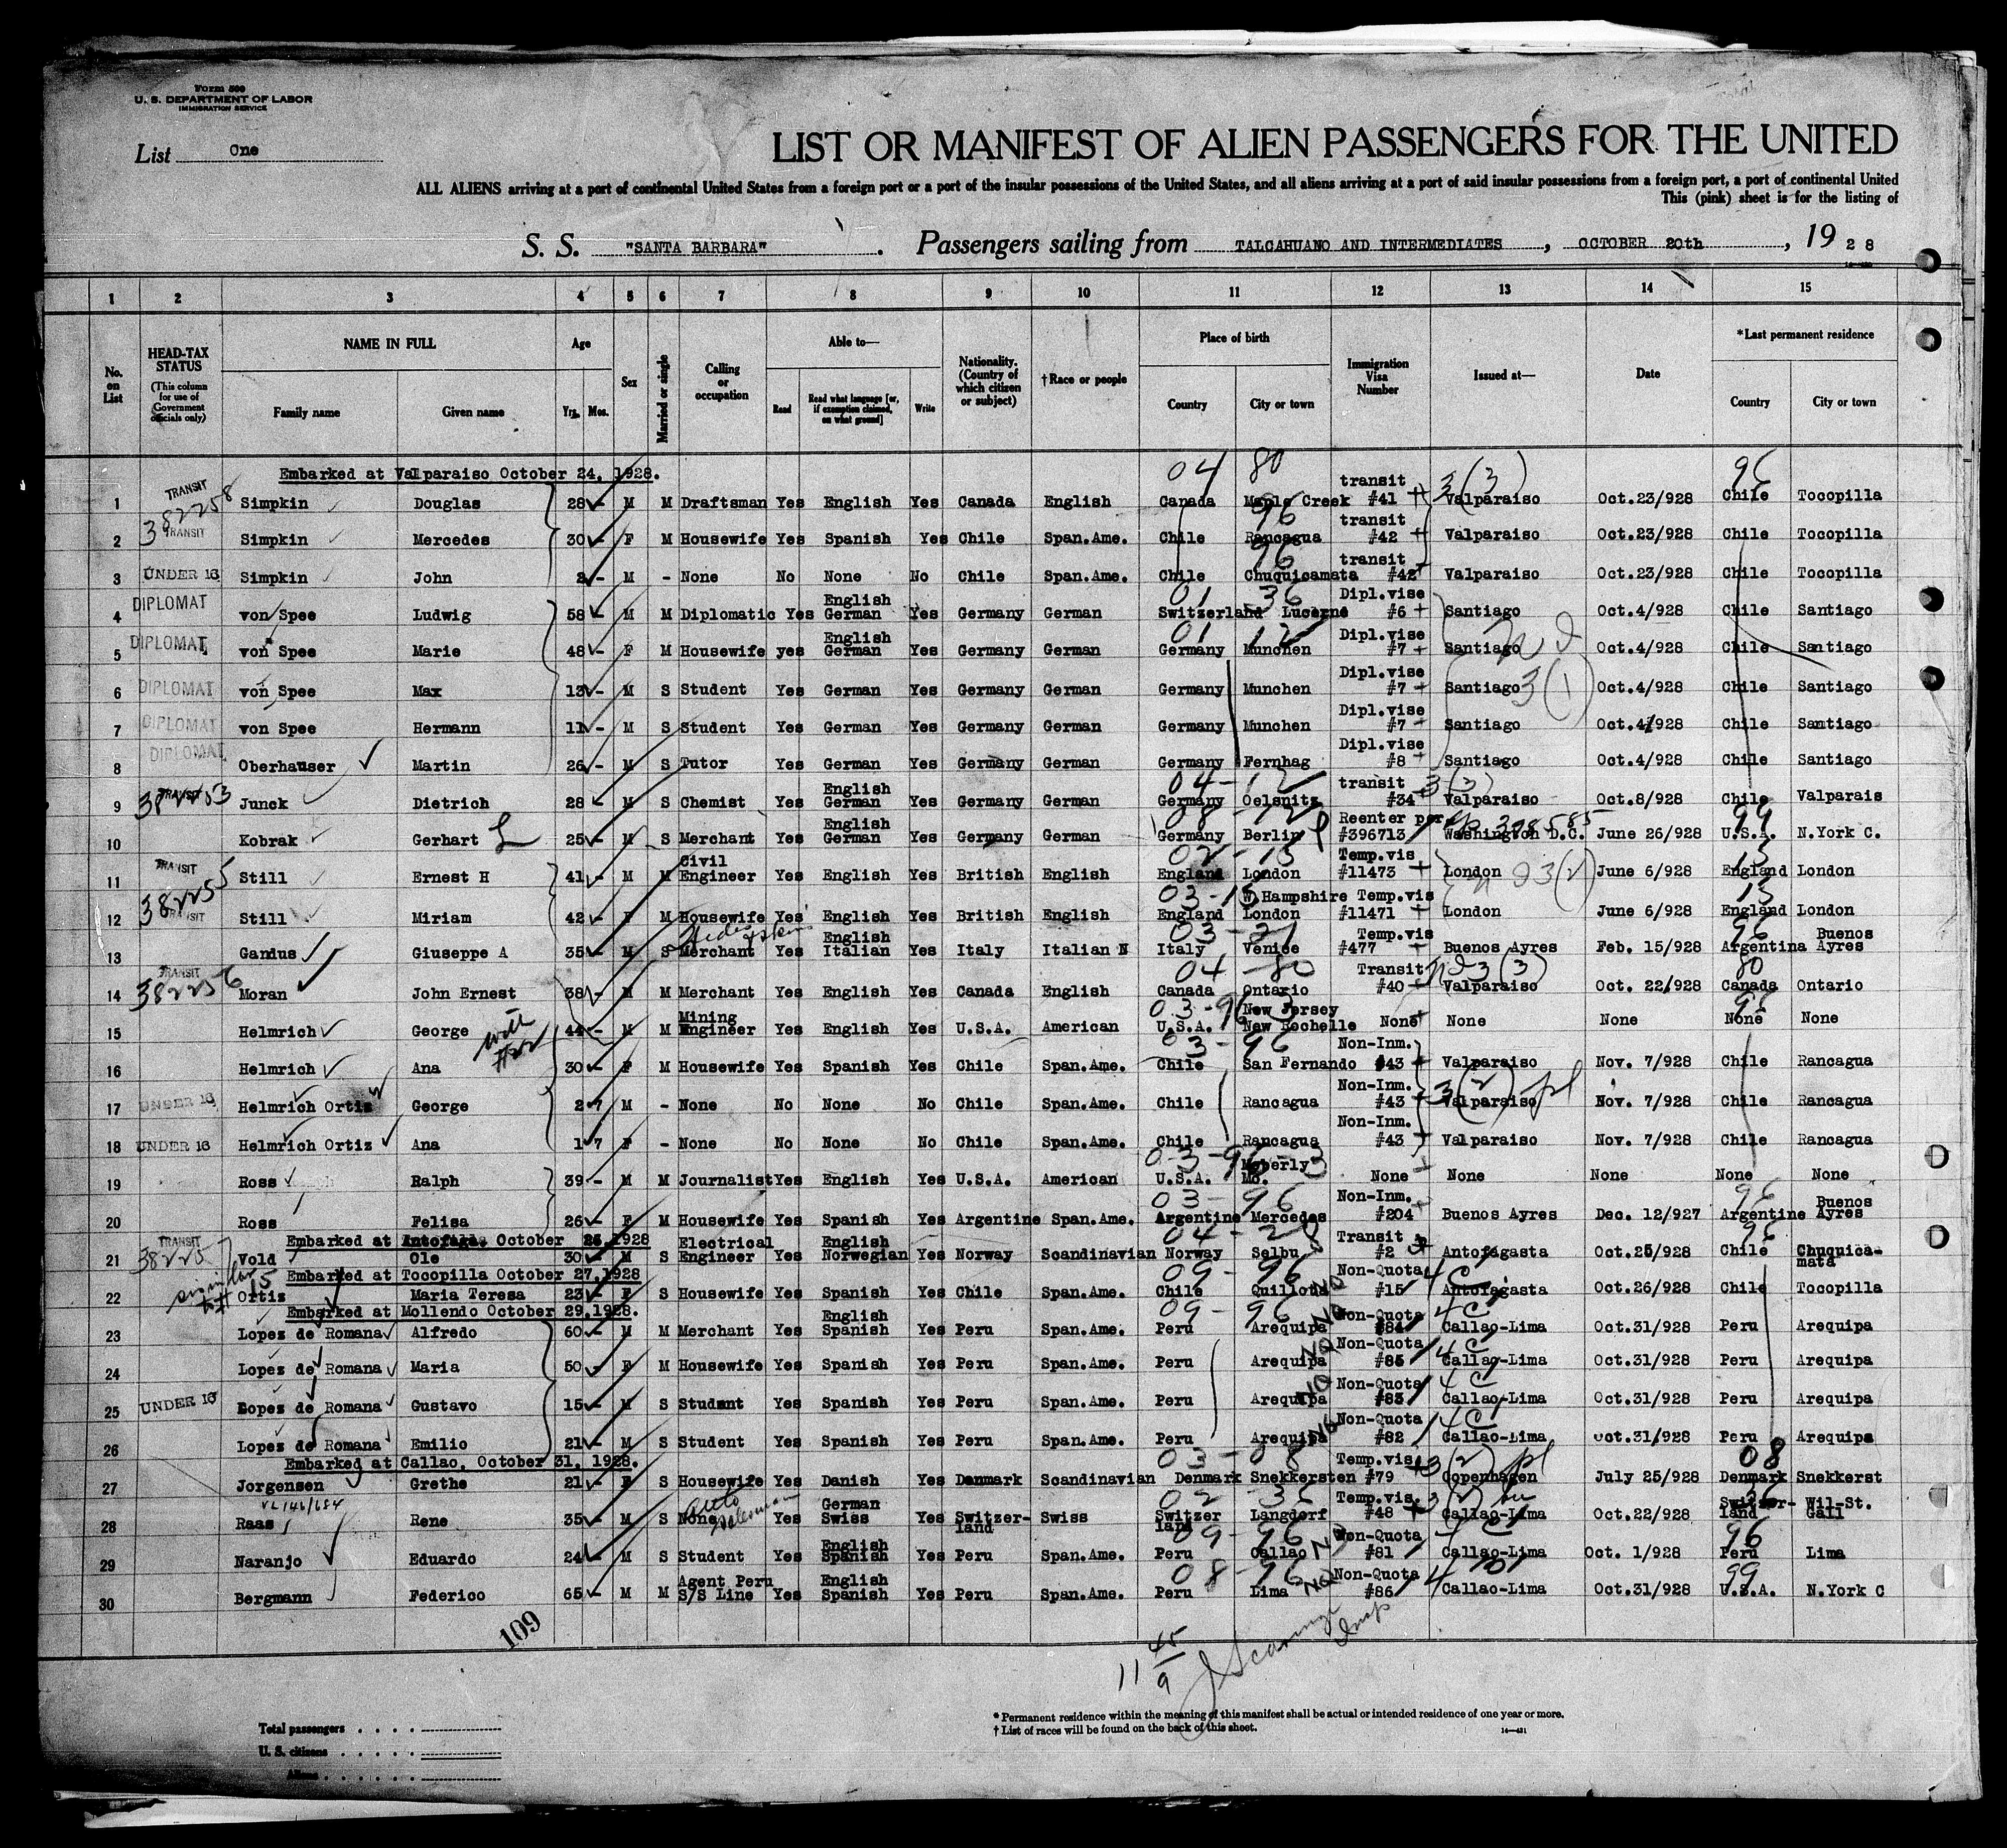 Form 500
U. S. DEPARTMENT OF LABOR
IMMIGRATION SERVICE
List One
LIST OR MANIFEST OF ALIEN PASSENGERS FOR THE UNITED
ALL ALIENS arriving at a port of continental United States from a foreign port or a port of the insular possessions of the United States, and all aliens arriving at a port of said insular possessions from a foreign port, a port of continental United
This (pink) sheet is for the listing of
S. S. "SANTA BARBARA". Passengers sailing from TALCAHUANO AND INTERMEDIATES, OCTOBER 20th, 1928
1 2 3 4 5 6 7 8 9 10 11 12 13 14 15
No. on List HEAD-TAX STATUS (This column for use of Government officials only) NAME IN FULL Family name Given name Age Yrs. Mos. Sex Married or single Calling or occupation Able to— Read Read what language [or, if exemption claimed, on what ground] Write Nationality. (Country of which citizen or subject) †Race or people Place of birth Country City or town Immigration Visa Number Issued at— Date *Last permanent residence Country City or town
Embarked at Valparaiso October 24, 1928. 04 80 3(3) 96
1 TRANSIT 382258 Simpkin Douglas 28 - M M Draftsman Yes English Yes Canada English Canada Maple Creek transit #41 Valparaiso Oct.23/928 Chile Tocopilla
2 TRANSIT Simpkin Mercedes 30 - F M Housewife Yes Spanish Yes Chile Span.Ame. Chile Rancagua 96 transit #42 Valparaiso Oct.23/928 Chile Tocopilla
3 UNDER 16 Simpkin John 2 - M - None No None No Chile Span.Ame. Chile Chuquicamata 96 transit #42 Valparaiso Oct.23/928 Chile Tocopilla
4 DIPLOMAT von Spee Ludwig 58 - M M Diplomatic Yes English German Yes Germany German 01 36 Switzerland Lucerne Dipl.vise #6 Santiago Oct.4/928 Chile Santiago
5 DIPLOMAT von Spee Marie 48 - F M Housewife yes English German Yes Germany German 01 12 Germany Munchen Dipl.vise #7 Santiago Oct.4/928 Chile Santiago
6 DIPLOMAT von Spee Max 12 - M S Student Yes German Yes Germany German Germany Munchen Dipl.vise #7 Santiago 3(1) Oct.4/928 Chile Santiago
7 DIPLOMAT von Spee Hermann 11 - M S Student Yes German Yes Germany German Germany Munchen Dipl.vise #7 Santiago Oct.4/928 Chile Santiago
8 DIPLOMAT Oberhauser Martin 26 - M S Tutor Yes German Yes Germany German Germany Fernhag Dipl.vise #8 Santiago Oct.4/928 Chile Santiago
9 TRANSIT 382253 Junck Dietrich 28 M S Chemist Yes English German Yes Germany German 04-12 Germany Oelsnitz transit #34 3(3) Valparaiso Oct.8/928 Chile Valparais
10 Kobrak Gerhart 25 - M S Merchant Yes English German Yes Germany German 08-12 Germany Berlin Reenter per #396713 Washington D.C. June 26/928 99 U.S.A. N.York C.
11 TRANSIT 382255 Still Ernest H 41 - M M Civil Engineer Yes English Yes British English 02-15 England London Temp.vis #11473 London 3(2) June 6/928 15 England London
12 TRANSIT Still Miriam 42 - F M Housewife Yes English Yes British English 03-15 England W.Hampshire London Temp.vis #11471 London June 6/928 15 England London
13 Gandus Giuseppe A 35 - M S Merchant Yes English Italian Yes Italy Italian N 03-21 Italy Venice Temp.vis #477 Buenos Ayres Feb. 15/928 96 Argentina Buenos Ayres
14 TRANSIT 382256 Moran John Ernest 38 - M M Merchant Yes English Yes Canada English 04-80 Canada Ontario Transit #40 3(3) Valparaiso Oct. 22/928 80 Canada Ontario
15 Helmrich George with #22 44 - M M Mining Engineer Yes English Yes U.S.A. American 03-96 3 U.S.A. New Jersey New Rochelle None None None 96 None None
16 Helmrich Ana 30 - F M Housewife Yes Spanish Yes Chile Span.Ame. 03-96 Chile San Fernando Non-Inm. #43 Valparaiso Nov. 7/928 Chile Rancagua
17 UNDER 16 Helmrich Ortiz George 2 7 M - None No None No Chile Span.Ame. Chile Rancagua Non-Inm. #43 3(2) Valparaiso Nov. 7/928 Chile Rancagua
18 UNDER 16 Helmrich Ortiz Ana 1 7 F - None No None No Chile Span.Ame. Chile Rancagua Non-Inm. #43 Valparaiso Nov. 7/928 Chile Rancagua
19 Ross Ralph 39 - M M Journalist Yes English Yes U.S.A. American 03-96-3 U.S.A. Moberly Mo. None None None None None
20 Ross Felisa 26 - F M Housewife Yes Spanish Yes Argentine Span.Ame. 03-96 Argentine Mercedes Non-Inm. #204 Buenos Ayres Dec. 12/927 96 Argentine Buenos Ayres
Embarked at Antofaga. October 25, 1928
21 TRANSIT 38225 Vold Ole 30 - M S Electrical Engineer Yes English Norwegian Yes Norway Scandinavian 04-2 Norway Selbu Transit #2 Antofagasta Oct.25/928 96 Chile Chuquica-mata
Embarked at Tocopilla October 27, 1928
22 similar to # 15 Ortiz Maria Teresa 23 - F S Housewife Yes Spanish Yes Chile Span.Ame. 09-96 Chile Quillota Non-Quota #15 4C Antofagasta Oct.26/928 Chile Tocopilla
Embarked at Mollendo October 29, 1928.
23 Lopez de Romana Alfredo 60 - M M Merchant Yes English Spanish Yes Peru Span.Ame. 09-96 Peru Arequipa Non-Quota #84 4C Callao-Lima Oct.31/928 Peru Arequipa
24 Lopez de Romana Maria 50 F M Housewife Yes Spanish Yes Peru Span.Ame. Peru Arequipa Non-Quota #85 4C Callao-Lima Oct.31/928 Peru Arequipa
25 UNDER 16 Lopez de Romana Gustavo 15 - M S Student Yes Spanish Yes Peru Span.Ame. Peru Arequipa Non-Quota #83 4C Callao-Lima Oct.31/928 Peru Arequipa
26 Lopez de Romana Emilio 21 - M S Student Yes Spanish Yes Peru Span.Ame. Peru Arequipa Non-Quota #82 4C Callao-Lima Oct.31/928 Peru Arequipa
Embarked at Callao, October 31, 1928.
27 Jorgensen Grethe 21 - F S Housewife Yes Danish Yes Denmark Scandinavian 03-08 Denmark Snekkersten Temp.vis. #79 3(2) Copenhagen July 25/928 08 Denmark Snekkerst
28 Raas Rene 35 - M S None Auto Salesman Yes German Swiss Yes Switzer-land Swiss 02-36 Switzer land Langdorf Temp.vis. #48 3(2) Callao-Lima Oct.22/928 36 Switzer-land Wil-St. Gall
29 Naranjo Eduardo 24 - M S Student Yes English Spanish Yes Peru Span.Ame. 09-96 Peru Callao Non-Quota #81 Callao-Lima Oct. 1/928 96 Peru Lima
30 Bergmann Federico 65 - M M Agent Peru S/S Line Yes English Spanish Yes Peru Span.Ame. 08-96 Peru Lima Non-Quota #86 4 Callao-Lima Oct.31/928 99 U.S.A. N.York C
109
11 45/9
Total passengers
U. S. citizens
Aliens
* Permanent residence within the meaning of this manifest shall be actual or intended residence of one year or more.
† List of races will be found on the back of this sheet.
14—431